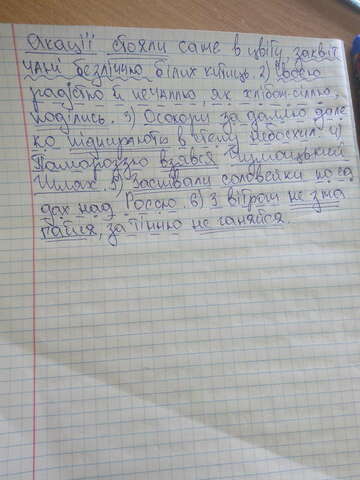 Акації стояли саме в цвіту, заквіт
чані безліччю білих китиць. 2) Своєю
радістю й печаллю, як хлібом-сіллю,
поділись. 3) Осокори за далию дале
ко підпирають в степу небосхил 4)
Паморозно взявся Чумацький
Шлях. 5) Заспівали соловейки по са
дах над Россю. 6) З вітром не зма
гайся, за тінню не ганяйся.